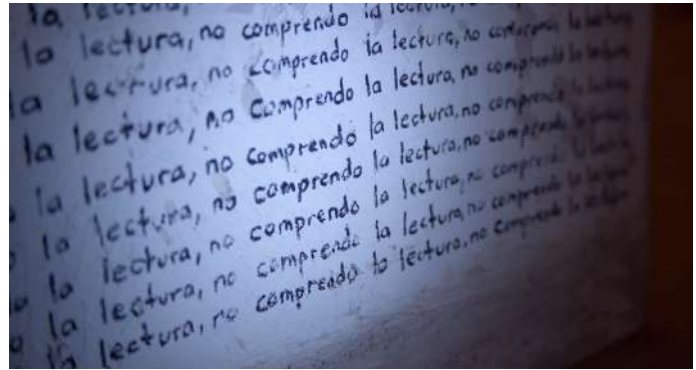 la lectura, no comprendo la lectura,
la lectura, no comprendo la lectura, no comprendo la lectura
la lectura, no comprendo la lectura, no comprendo la lectura
la lectura, no comprendo la lectura, no comprendo la lectura
la lectura, no comprendo la lectura, no comprendo la lectura
la lectura, no comprendo la lectura, no comprendo la lectura
la lectura, no comprendo la lectura, no comprendo la lectura
la lectura, no comprendo la lectura, no comprendo la lectura